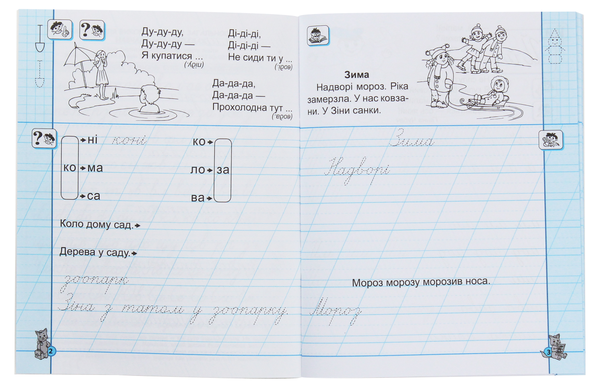 Ду-ду-ду,
Ду-ду-ду —
Я купатися ...
Ді-ді-ді,
Ді-ді-ді —
Не сиди ти у ...
Да-да-да,
Да-да-да —
Прохолодна тут ...
?
?
ко
ні коні
ма
са
ко
ло
ва
за
Коло дому сад.
Дерева у саду.
зоопарк
Зіна з татом у зоопарку.
2
Зима
Надворі мороз. Ріка
замерзла. У нас ковза-
ни. У Зіни санки.
Зима
Надворі
Мороз морозу морозив носа.
Мороз
3